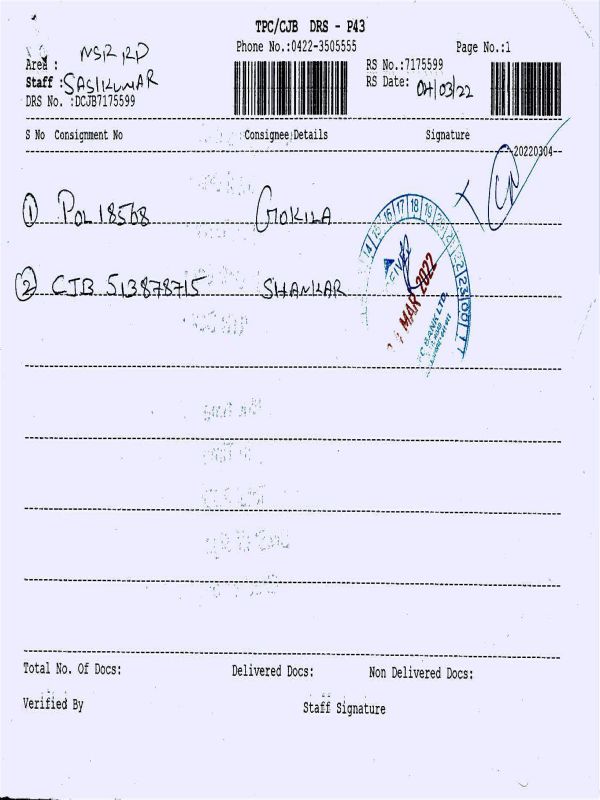 TPC/CJB DRS - P43
Phone No.:0422-3505555 Page No.:1
Area : NSR RD
RS No.:7175599
Staff : SASIKUMAR
RS Date: 04/03/22
DRS No. :DCJB7175599
S No Consignment No Consignee Details Signature
20220304
① POL18568 GOKILA
② CJB 513878715 SHANKAR
14 15 16 17 18 19 20 21 22 23 00
MAR 2022
BANK LTD.
Total No. Of Docs: Delivered Docs: Non Delivered Docs:
Verified By Staff Signature